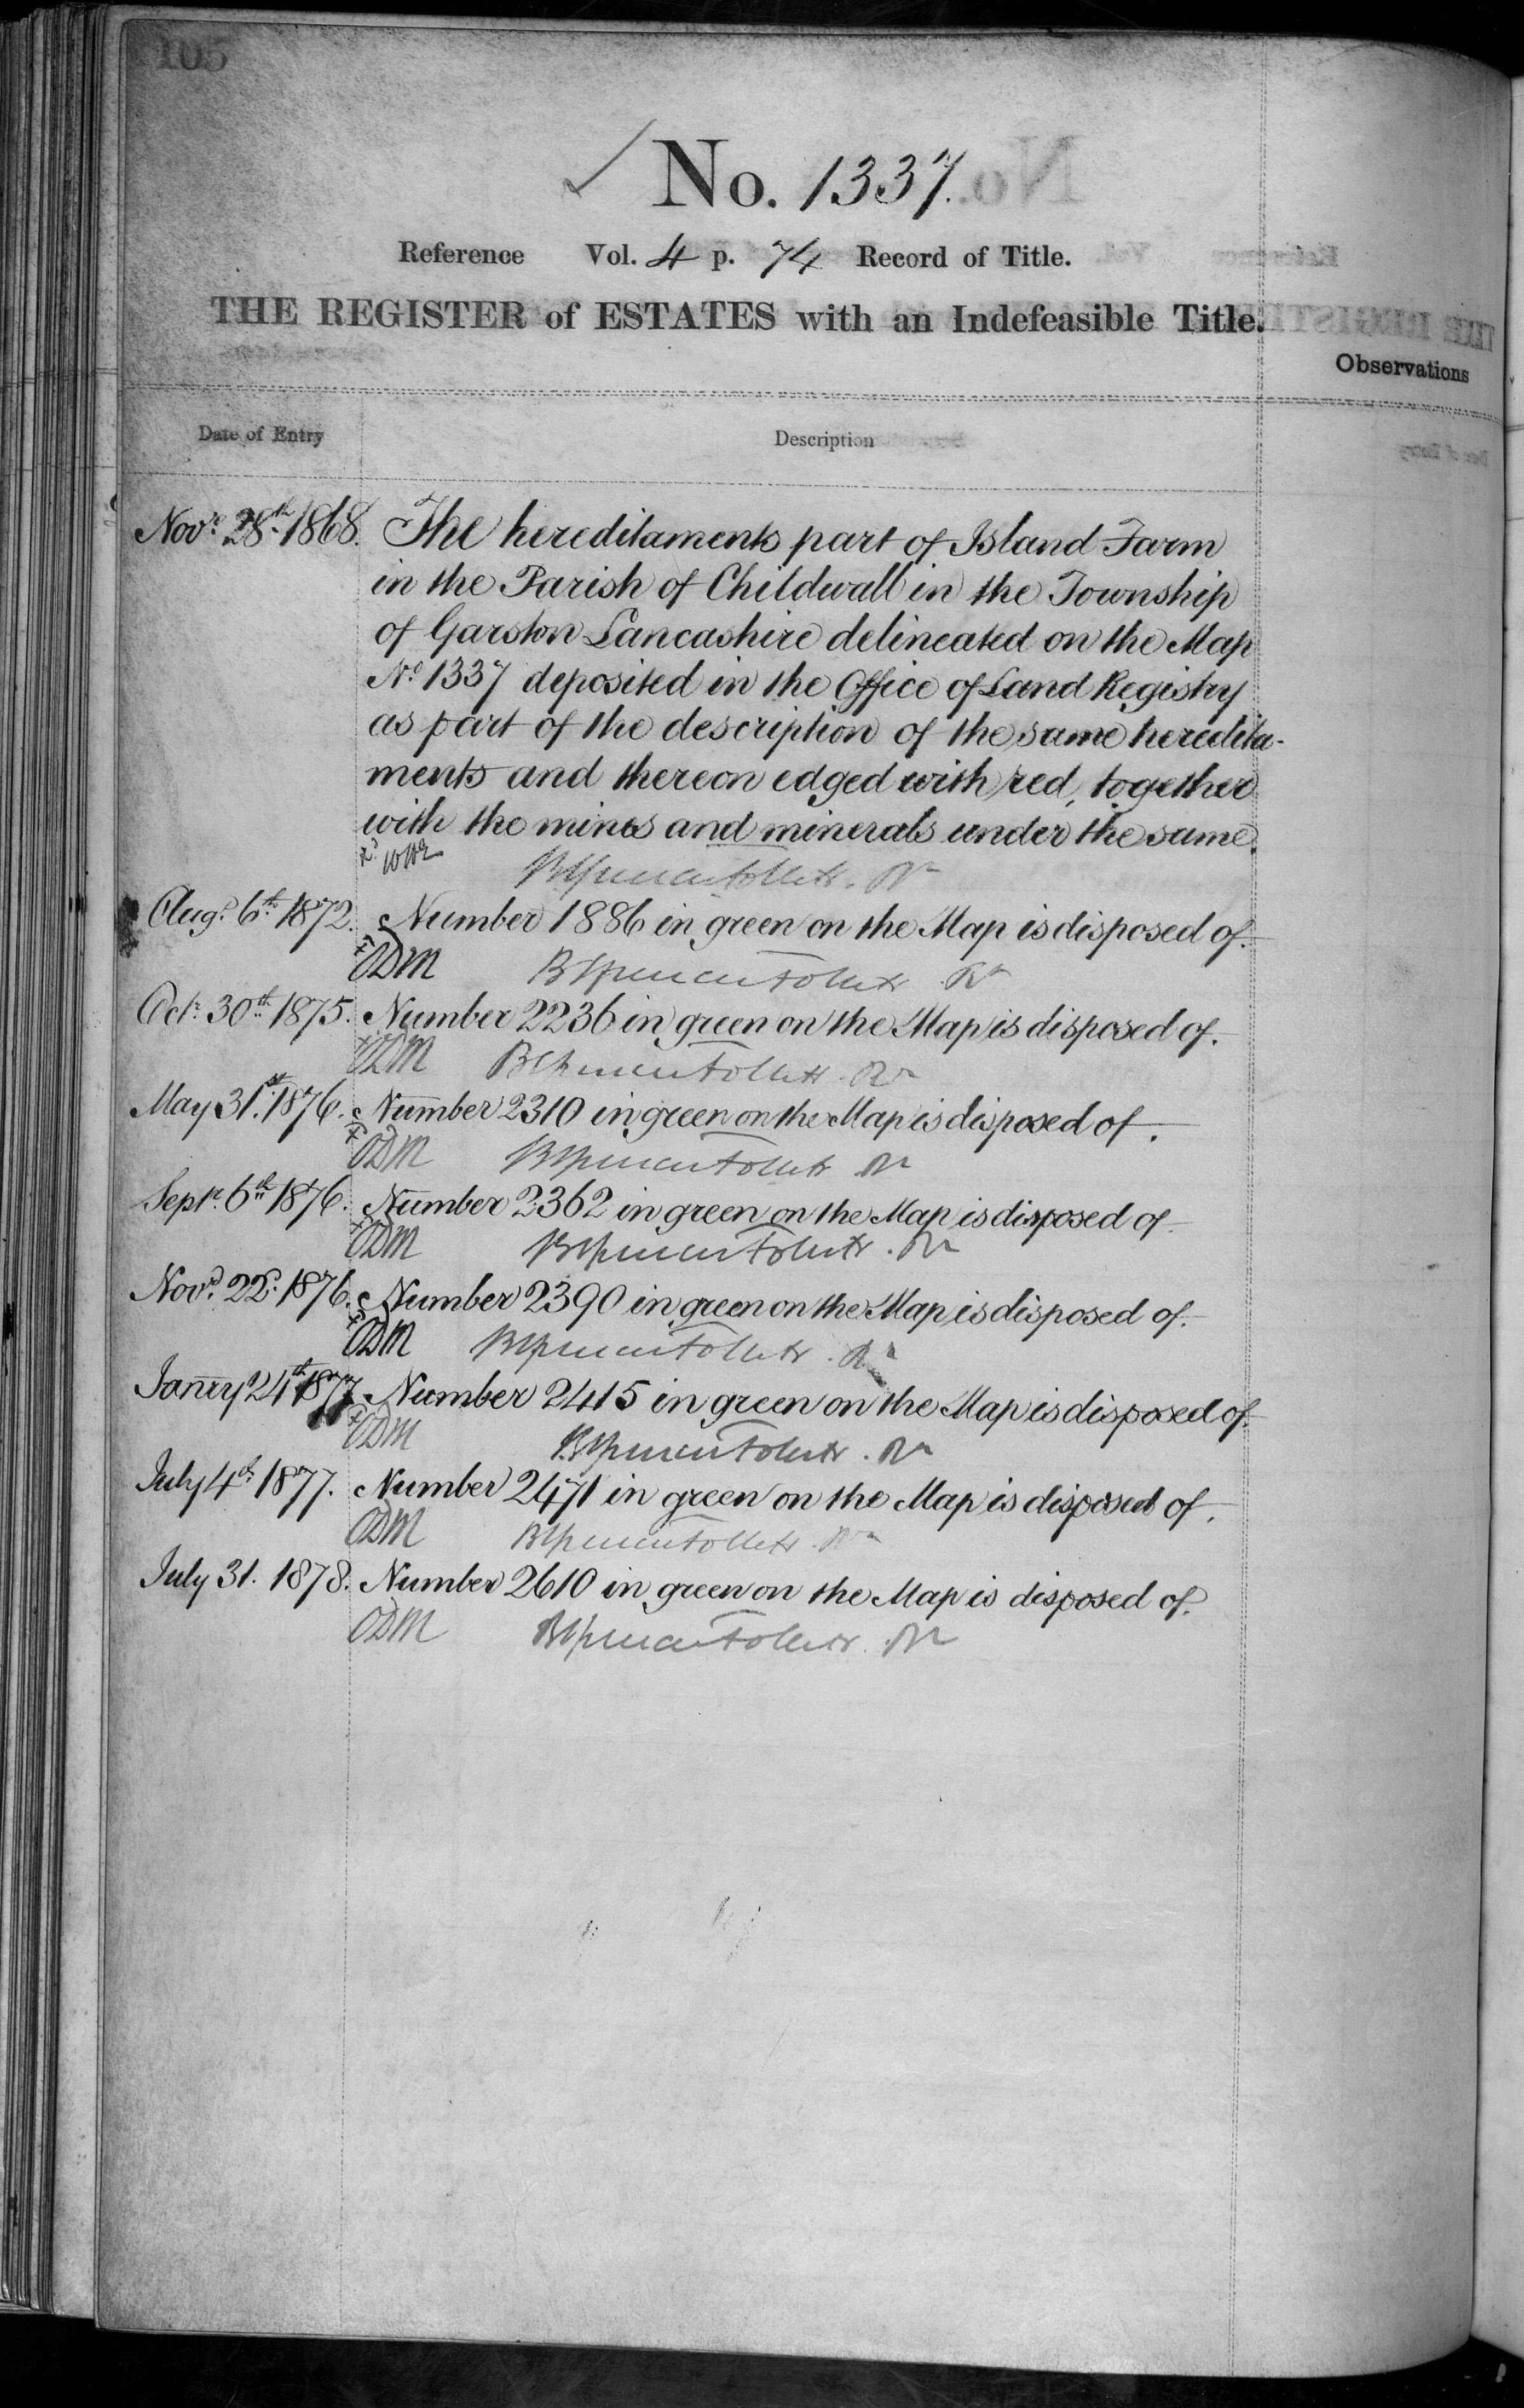 105
No. 1337.
Reference Vol. 4 p. 74 Record of Title.
THE REGISTER of ESTATES with an Indefeasible Title.
Observations
Date of Entry Description
Novr. 28th 1868. The hereditaments part of Island Farm
in the Parish of Childwall in the Township
of Garston Lancashire delineated on the Map
No. 1337 deposited in the Office of Land Registry
as part of the description of the same heredita-
ments and thereon edged with red, together
with the mines and minerals under the same.
Augt. 6th 1872. Number 1886 in green on the Map is disposed of.
ODM
Octr. 30th 1875. Number 2236 in green on the Map is disposed of.
ODM
May 31st 1876. Number 2310 in green on the Map is disposed of.
ODM
Septr. 6th 1876. Number 2362 in green on the Map is disposed of
ODM
Novr. 22d. 1876. Number 2390 in green on the Map is disposed of.
ODM
Janry 24th 1877 Number 2415 in green on the Map is disposed of.
ODM
July 4th 1877. Number 2471 in green on the Map is disposed of.
ODM
July 31. 1878. Number 2610 in green on the Map is disposed of.
ODM